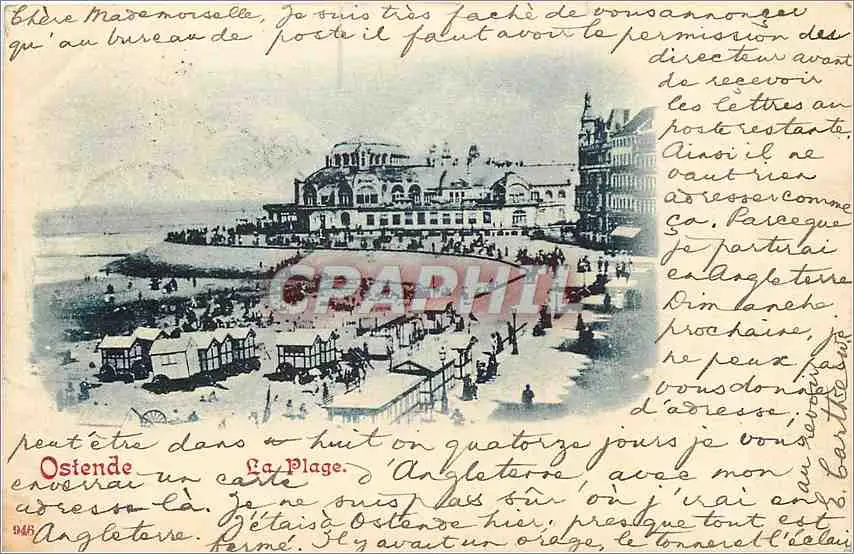 Chère Mademoiselle, Je suis très fachè de vous annoncer
qu'au bureau de poste il faut avoir le permission des
directeur avant
de reçevoir
les lettres au
poste restante.
Ainsi il ne
vaut rien
adresser comme
ça. Parceque
je partirai
en Angleterre
Dimanche
prochaine, je
ne peux pas
vous donner
d'adresse.
peut être dans huit on quatorze jours je vous
enverrai un carte d'Angleterre, avec mon
adresse là. Je ne suis pas sûr où j'irai en
Angleterre. J'étais à Ostende hier; presque tout est
fermé. Il y avait un orage, le tonner et l'éclair
au revoir
Ostende La Plage.
946
GRAPHIL